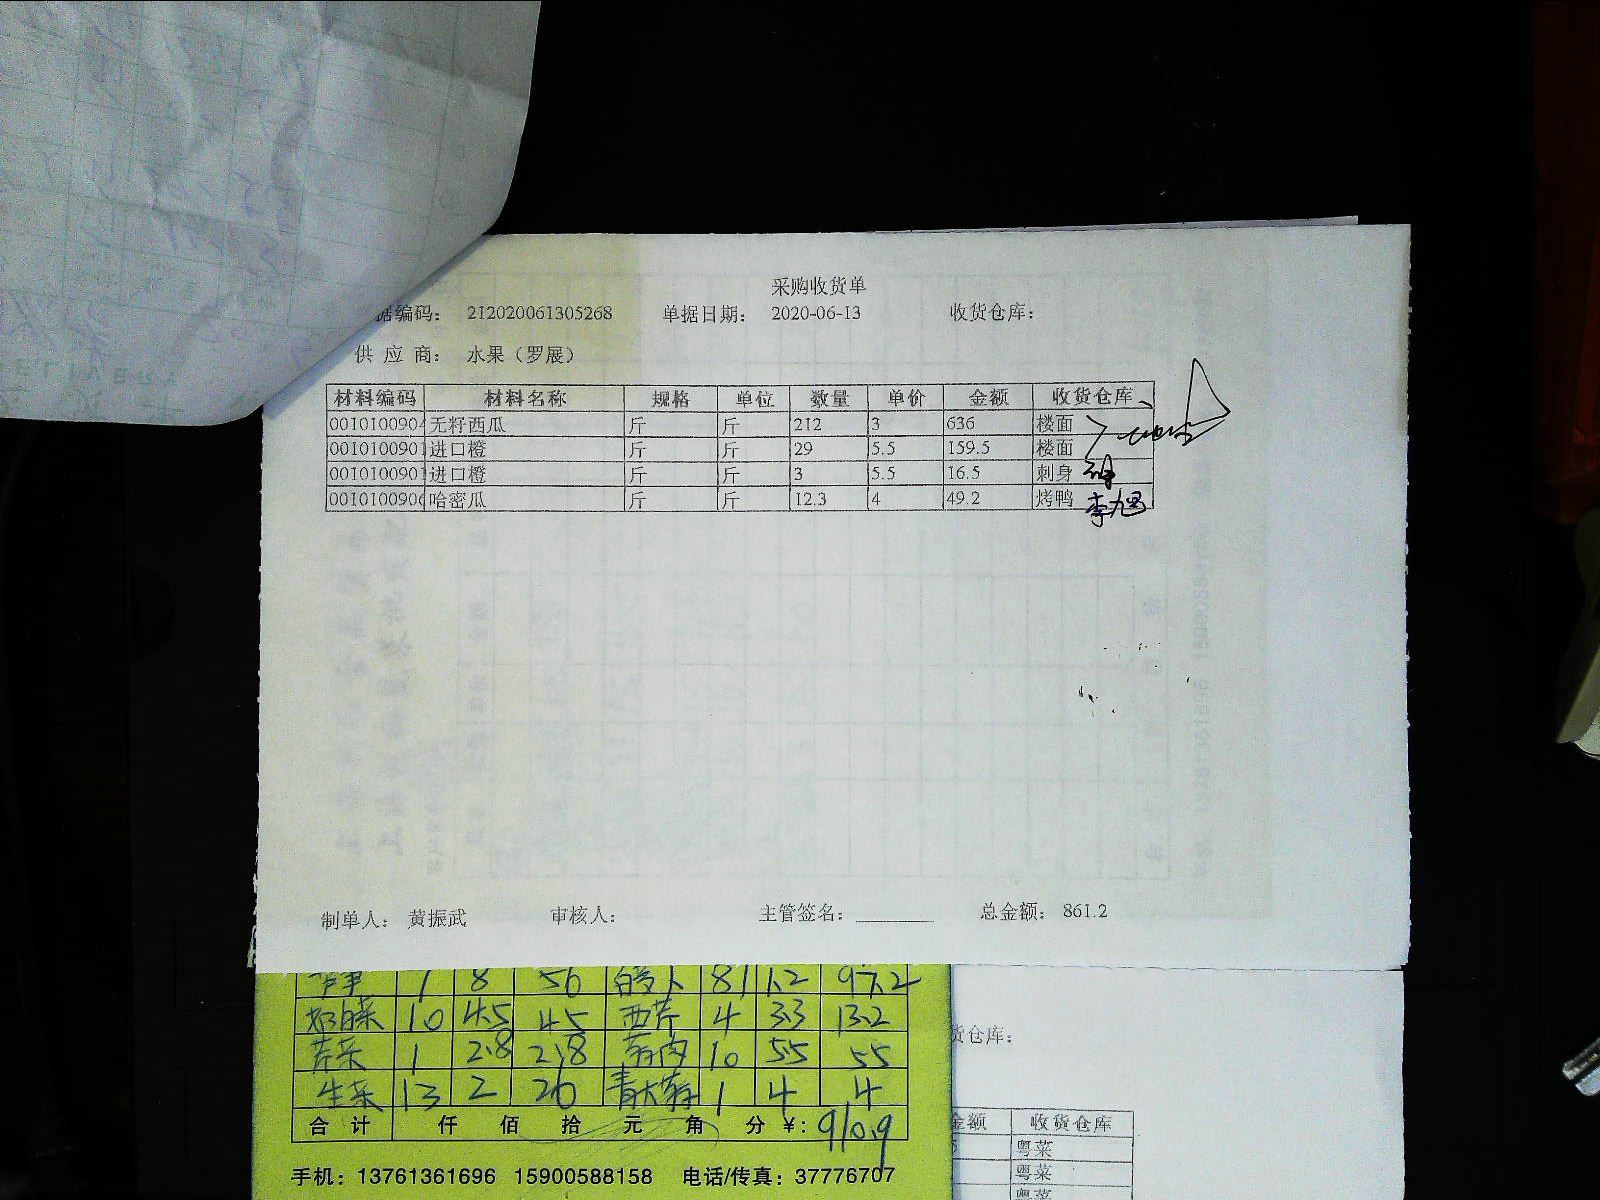 采购收货单
据编码： 212020061305268 单据日期： 2020-06-13 收货仓库：
供 应 商： 水果（罗展）
材料编码 材料名称 规格 单位 数量 单价 金额 收货仓库
0010100904 无籽西瓜 斤 斤 212 3 636 楼面
001010090 进口橙 斤 斤 29 5.5 159.5 楼面
001010090 进口橙 斤 斤 3 5.5 16.5 刺身
001010090 哈密瓜 斤 斤 12.3 4 49.2 烤鸭
制单人： 黄振武 审核人： 主管签名： 总金额： 861.2
8 56 白萝卜 81 1.2 97.2
奶白菜 10 4.5 45 西芹 4 3.3 13.2
芹菜 1 2.8 2.8 10 5.5 55
生菜 13 2 26 1 4 4
合 计 仟 佰 拾 元 角 分 ¥: 910.9
手机：13761361696 15900588158 电话/传真：37776707
货仓库：
金额 收货仓库
粤菜
粤菜
粤菜